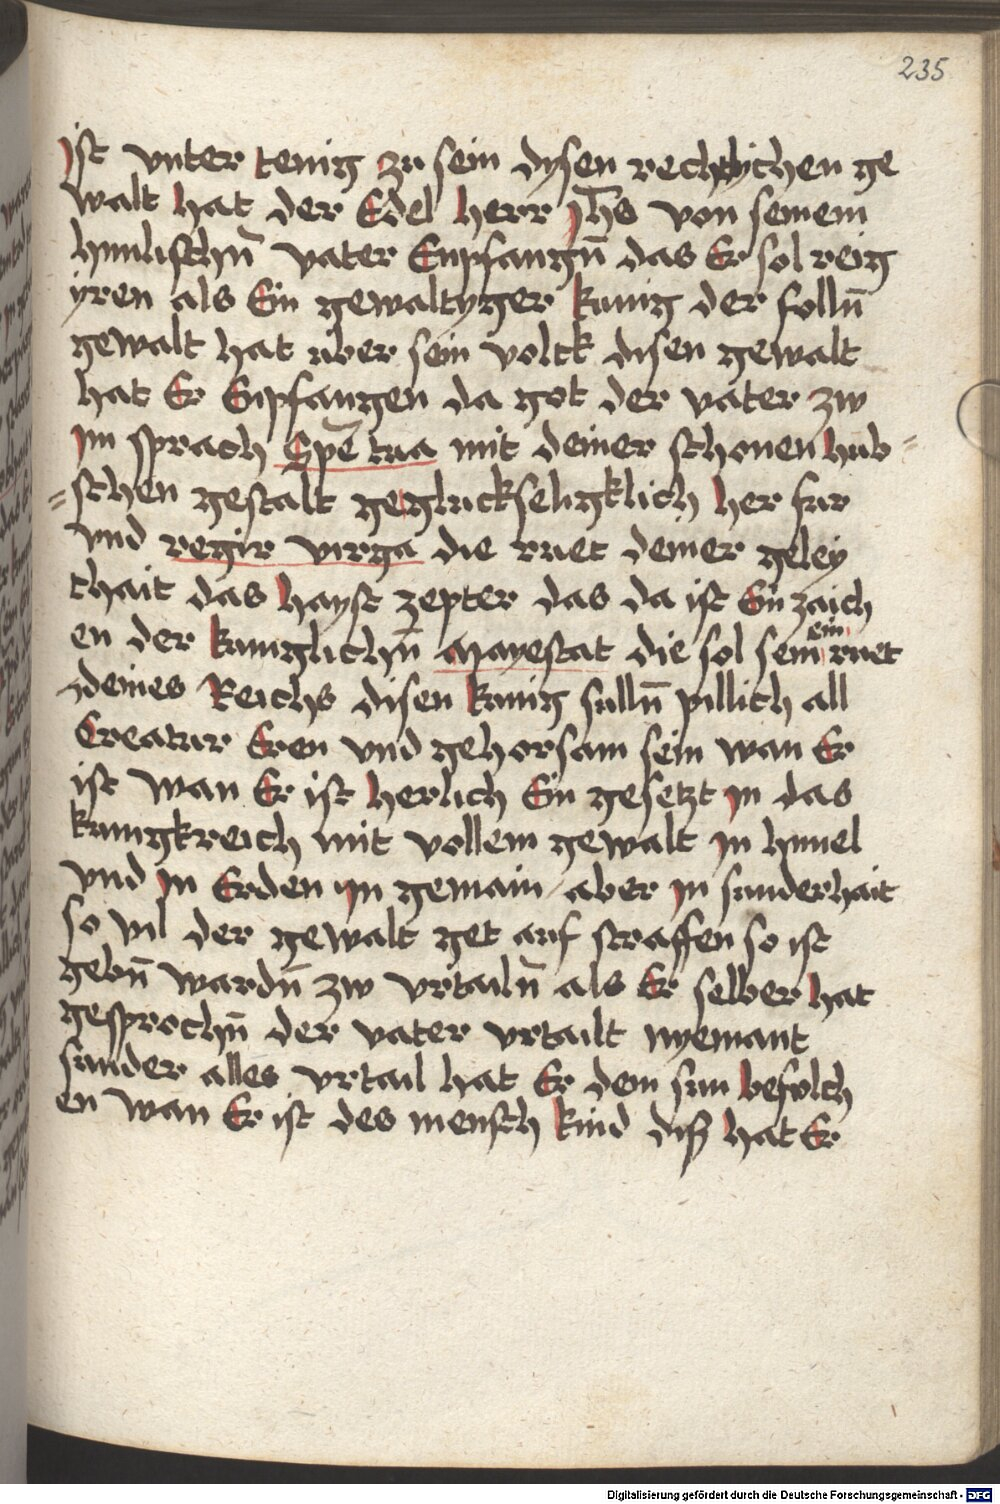 235
ist vnter tenig zu sein dysen rechtlychen ge
walt hat der Edel herr Jhs von seinem
himlischn̄ vater Enpfangn̄ das Er sol reig
yren als Ein gewaltyger kunig der folln̄
gewalt hat uber sein volck disen gewalt
hat Er Enpfangen da got der vater zw
im sprach Spē tua mit deiner schonen hub⸗
⸗schen gestalt geglückseligklich her fur
vnd regir virga die ruet deiner geley
thait das hayst zepter das da ist Ein zaich
en der kunglichn̄ Mayestat die sol sein ein ruet
deines Reichs disen kunig sulln̄ pillich all
Creatur Eren vnd gehorsam sein wan Er
ist wan Er ist herlich Ein gesetzt in das
kunigkreich mit vollem gewalt in himel
vnd in Erden im gemain / aber in sunderhait
so vil der gewalt get auf straffen so ist
gebn̄ wardn̄ zw vrtailn̄ als Er selber hat
gesprochn̄ der vater vrtailt nyemant
sunder alles vrtail hat Er dem sun befolch
en wan Er ist des mensch kind diß hat Er
Digitalisierung gefördert durch die Deutsche Forschungsgemeinschaft - DFG